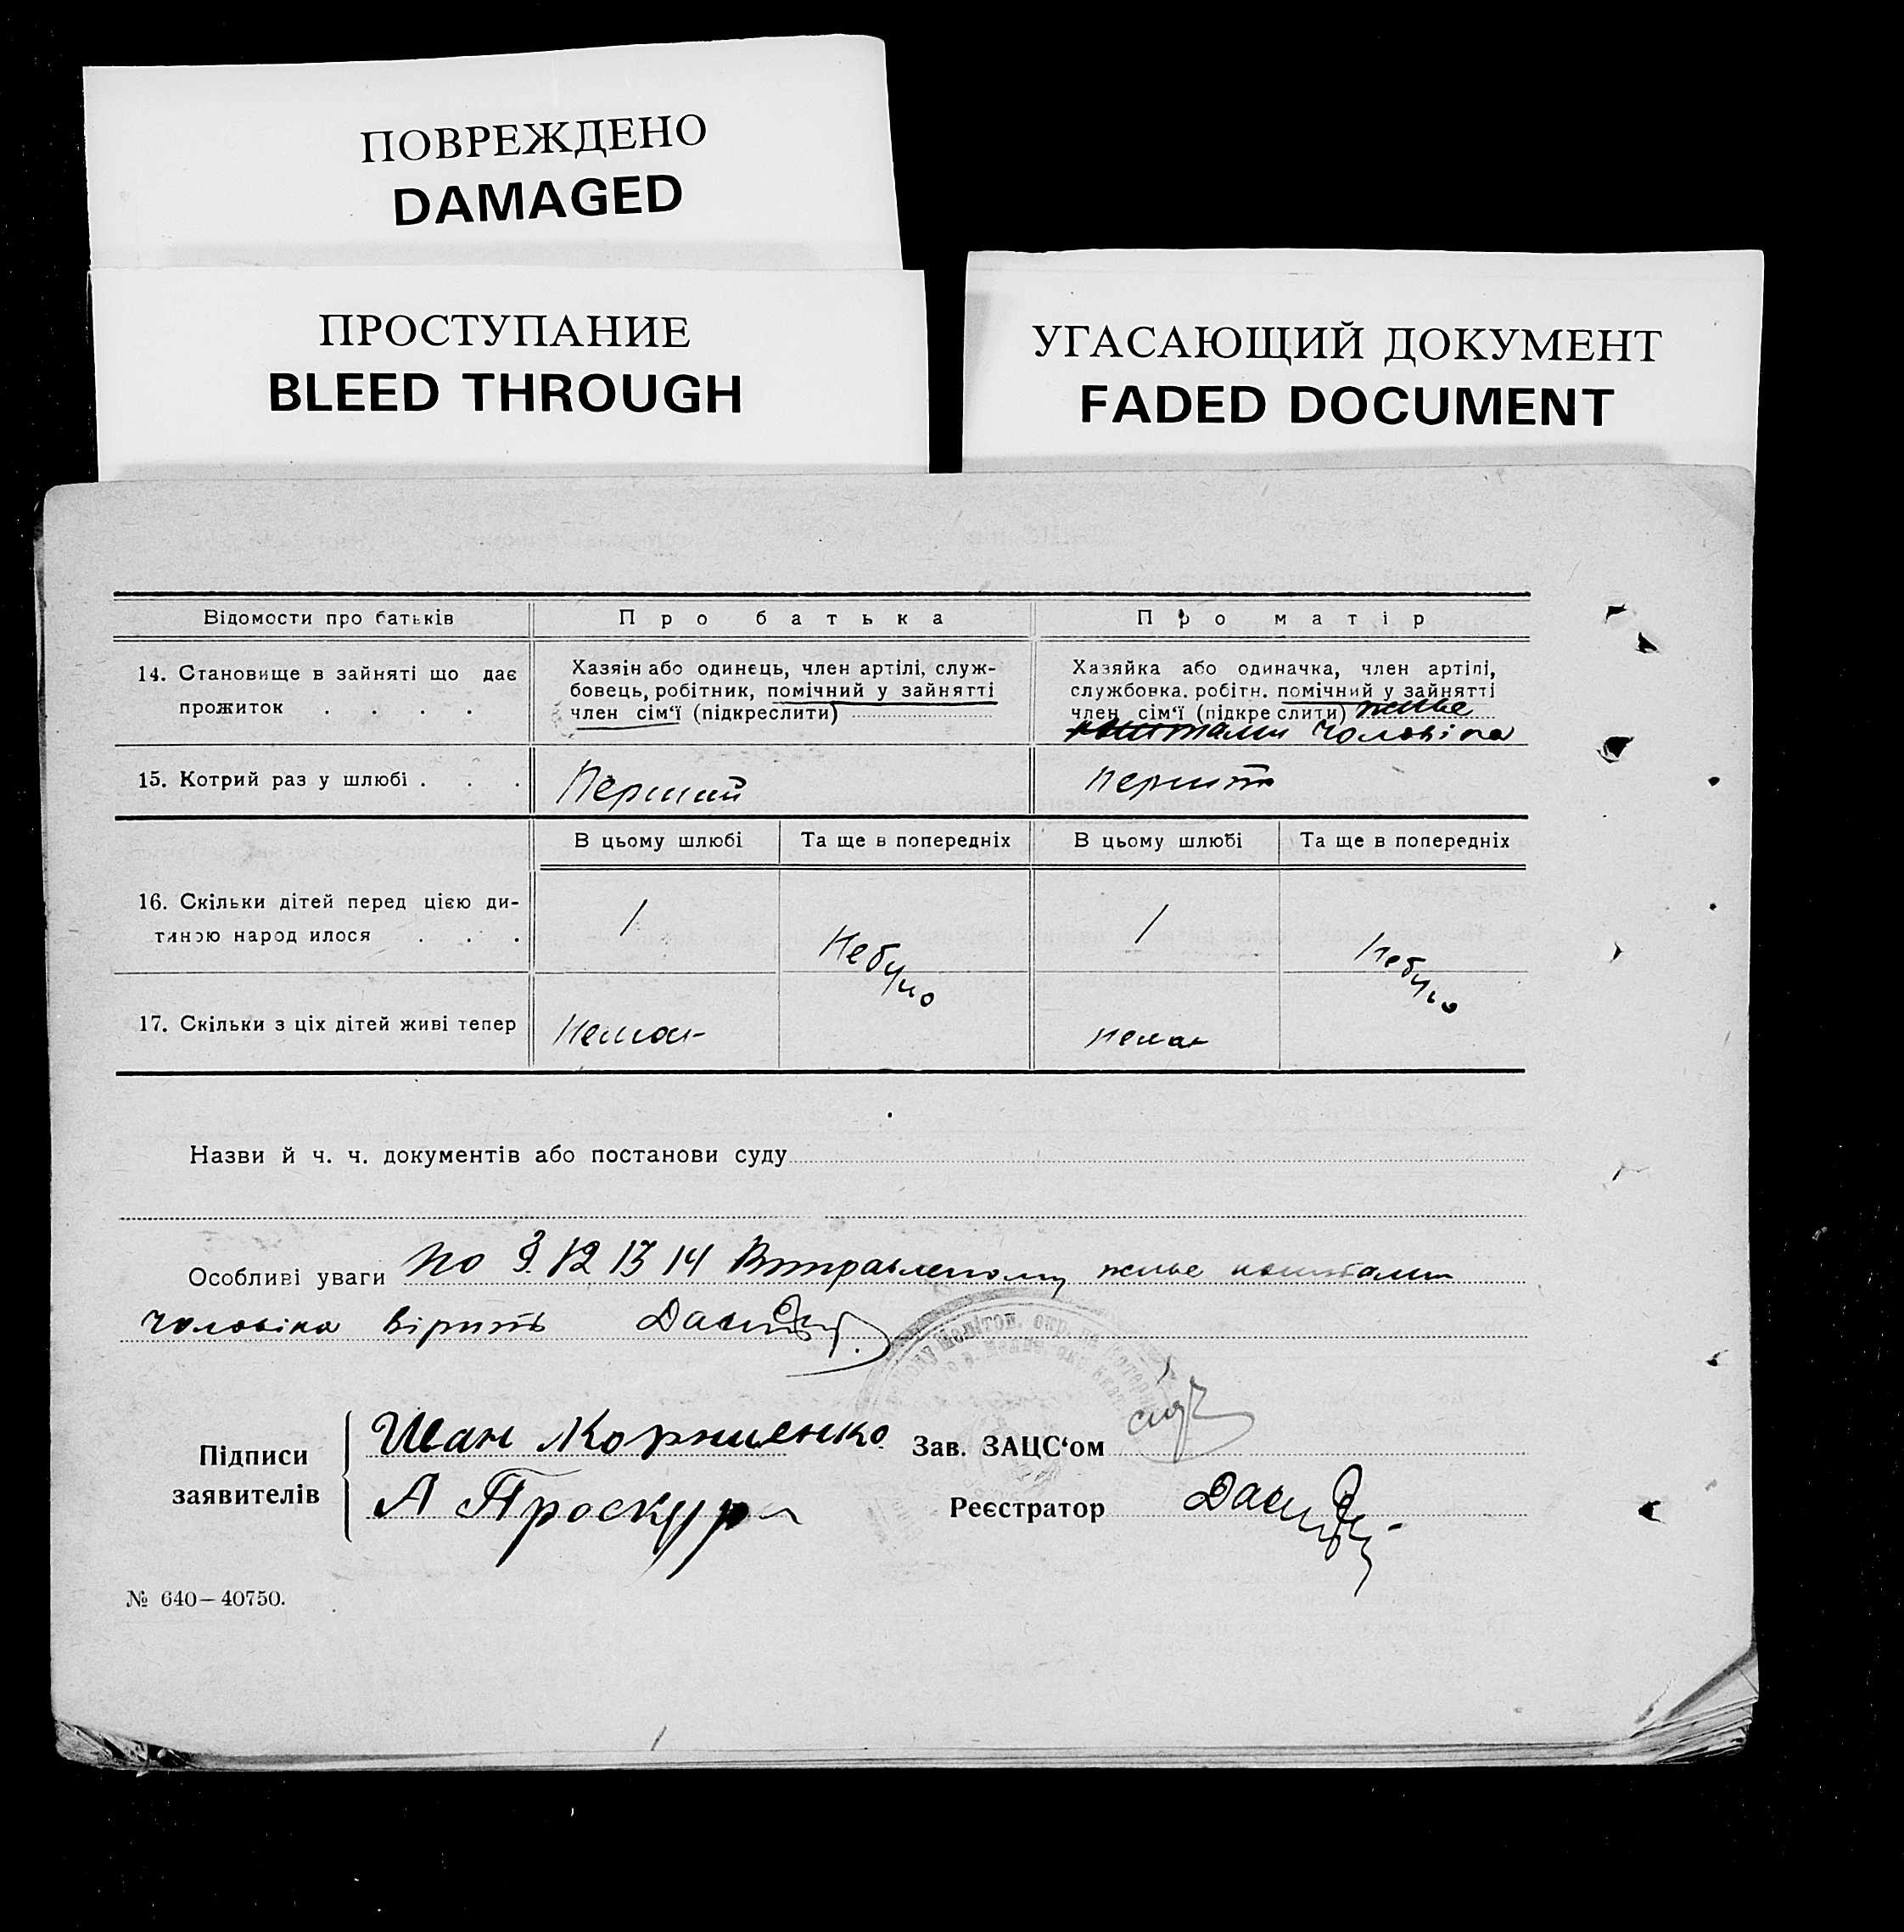 ПОВРЕЖДЕНО
DAMAGED
ПРОСТУПАНИЕ
BLEED THROUGH
УГАСАЮЩИЙ ДОКУМЕНТ
FADED DOCUMENT
Відомости про батьків
Про батька
Про матір
14. Становище в зайняті що дає
прожиток . . . .
Хазяін або одинець, член артілі, служ-
бовець, робітник, помічний у зайнятті
член сім'ї (підкреслити)
Хазяйка або одиначка, член артілі,
службовка. робітн. помічний у зайнятті
член сім'ї (підкреслити) живе
коштами чоловіка
15. Котрий раз у шлюбі . . .
Перший
перший
В цьому шлюбі
Та ще в попередніх
В цьому шлюбі
Та ще в попередніх
16. Скільки дітей перед цією ди-
тиною народилося . . .
1
Небуло
1
Небуло
17. Скільки з ціх дітей живі тепер
Немає
немає
Назви й ч. ч. документів або постанови суду
Особливі уваги по 12 13 14 Виправленому живе коштами
чоловіка вірить
Підписи
заявителів
Иван Корниенко
А Проскура
Зав. ЗАЦС'ом
Реєстратор
№ 640—40750.